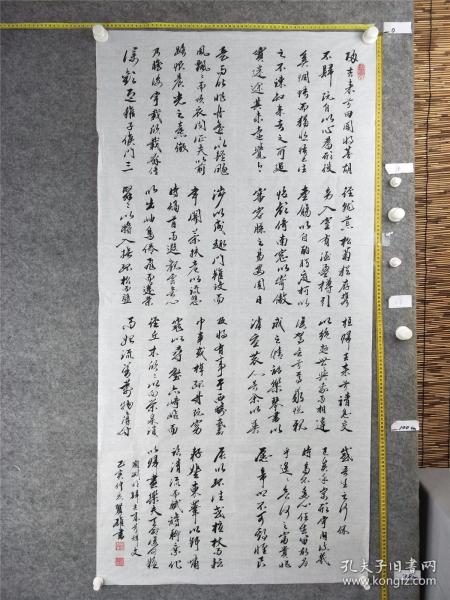 歸去來兮田園將蕪胡
不歸既自以心為形役
奚惆悵而獨悲悟已往
之不諫知來者之可追
實迷途其未遠覺今
是而昨非舟遙遙以輕颺
風飄飄而吹衣問征夫以前
路恨晨光之熹微
乃瞻衡宇載欣載奔僮
僕歡迎稚子候門三
徑就荒松菊猶存攜
幼入室有酒盈樽引
壺觴以自酌眄庭柯以
怡顏倚南窗以寄傲
審容膝之易安園日
涉以成趣門雖設而
常關策扶老以流憩
時矯首而遐觀雲無心
以出岫鳥倦飛而知還景
翳翳以將入撫孤松而盤
桓歸去來兮請息交
以絕遊世與我而相違
復駕言兮焉求悅親
戚之情話樂琴書以
消憂農人告余以春
及將有事于西疇或命
巾車或棹孤舟既窈
窕以尋壑亦崎嶇而
經丘木欣欣以向榮泉涓
而始流善萬物得時
感吾生之行休
已矣乎寓形宇內復幾
時曷不委心任去留胡為
乎遑遑兮欲何之富貴非吾
願帝鄉不可期懷良
辰以孤往或植杖而耘
耔登東皋以舒嘯
臨清流而賦詩聊乘化
以歸盡樂夫天命復奚疑
陶淵明歸去來兮辭文
己亥仲春
書
孔夫子旧书网